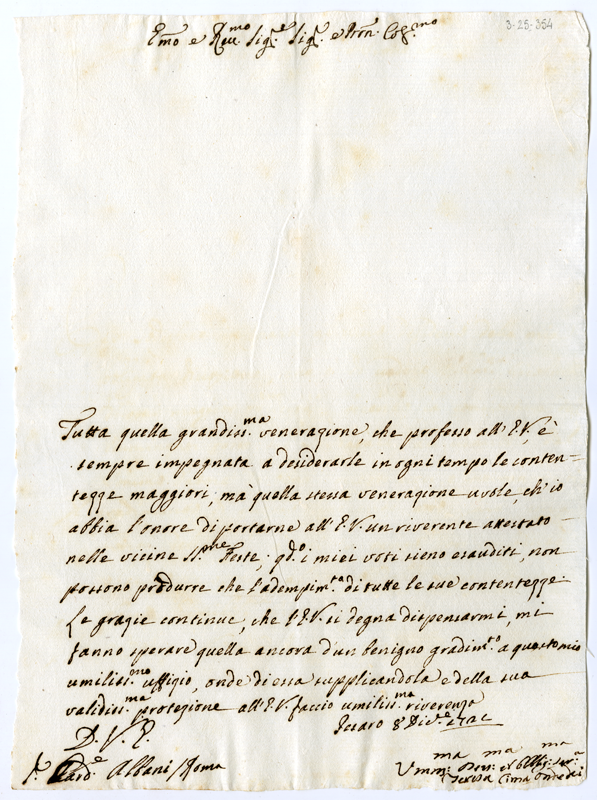 3-25-354
Emo e Rmo Sigr. Sigr. e Pron. Colmo
Tutta quella grandissma. venerazione, che professo all'E.V., è
sempre impegnata a desiderarle in ogni tempo le conten=
tezze maggiori; mà quella stessa venerazione vuole, ch'io
abbia l'onore di portarne all'E.V. un riverente attestato
nelle vicine SSme Feste; qdo i miei voti sieno esauditi, non
possono produrre che l'adempimto. di tutte le sue contentezze.
Le grazie continue, che l'E.V. si degna dispensarmi, mi
fanno sperare quella ancora d'un benigno gradimto a questo mio
umilissmo uffizio, onde di essa supplicandola e della sua
validissma protezione all'E.V. faccio umilissma riverenza
Pesaro 8 Dice.
D. V. E.
Sr. Carde. Albani / Roma
Ummma Devma et Obblma Serva
Teresa Cima Ondedei